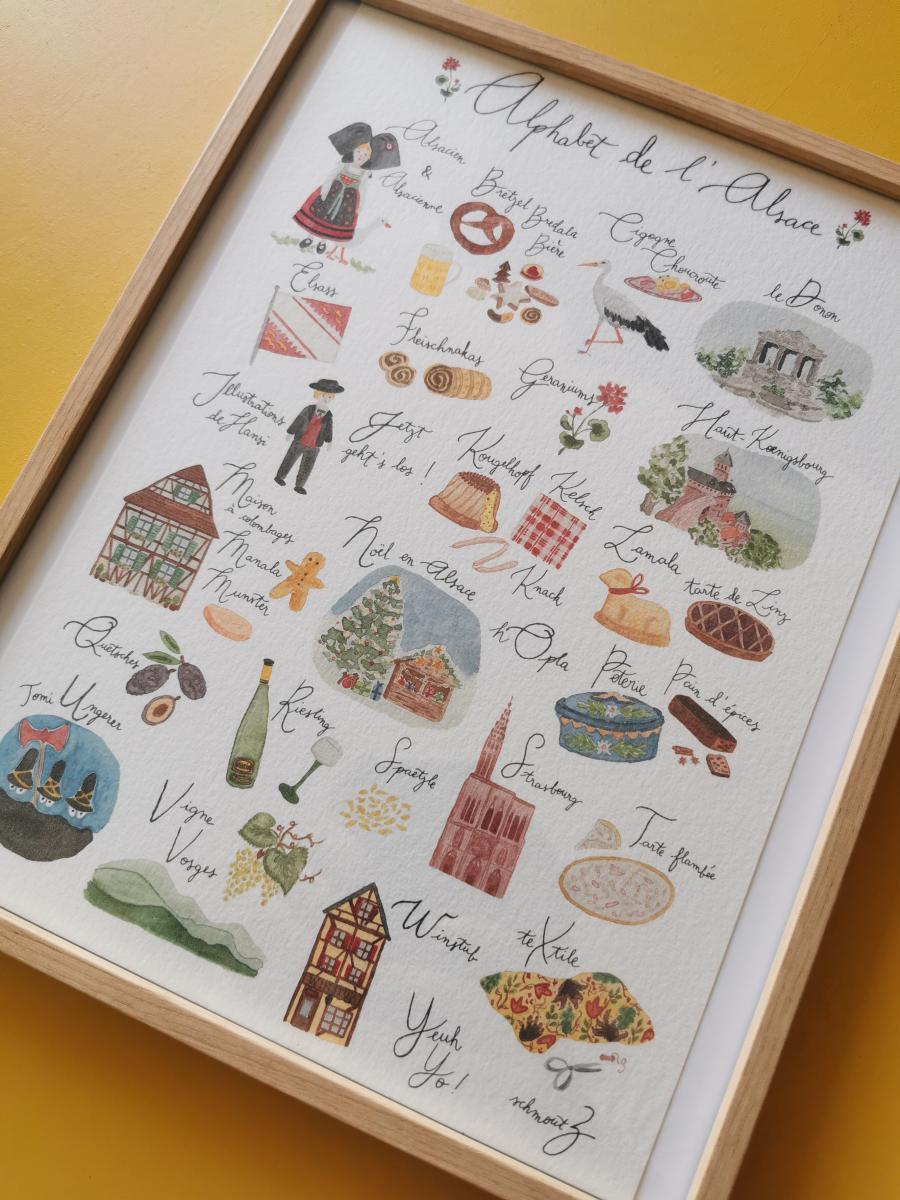 Alphabet de l'Alsace
Alsacien
&
Alsacienne
Bretzel
Bredala
Bière
Cigogne
Choucroute
le Donon
Elsass
Fleischnakas
Geraniums
Haut-Kœnigsbourg
Illustrations
de Hansi
Jetzt
geht's los !
Kougelhopf
Kelsch
Knack
Lamala
tarte de Linz
Maison
à colombages
Manala
Munster
Noël en Alsace
hOpla
Poterie
Pain d'épices
Quetsches
Riesling
Spaetzle
Strasbourg
Tarte flambée
Tomi Ungerer
Vigne
Vosges
Winstub
teXtile
Yeuh
Yo !
schmoutZ